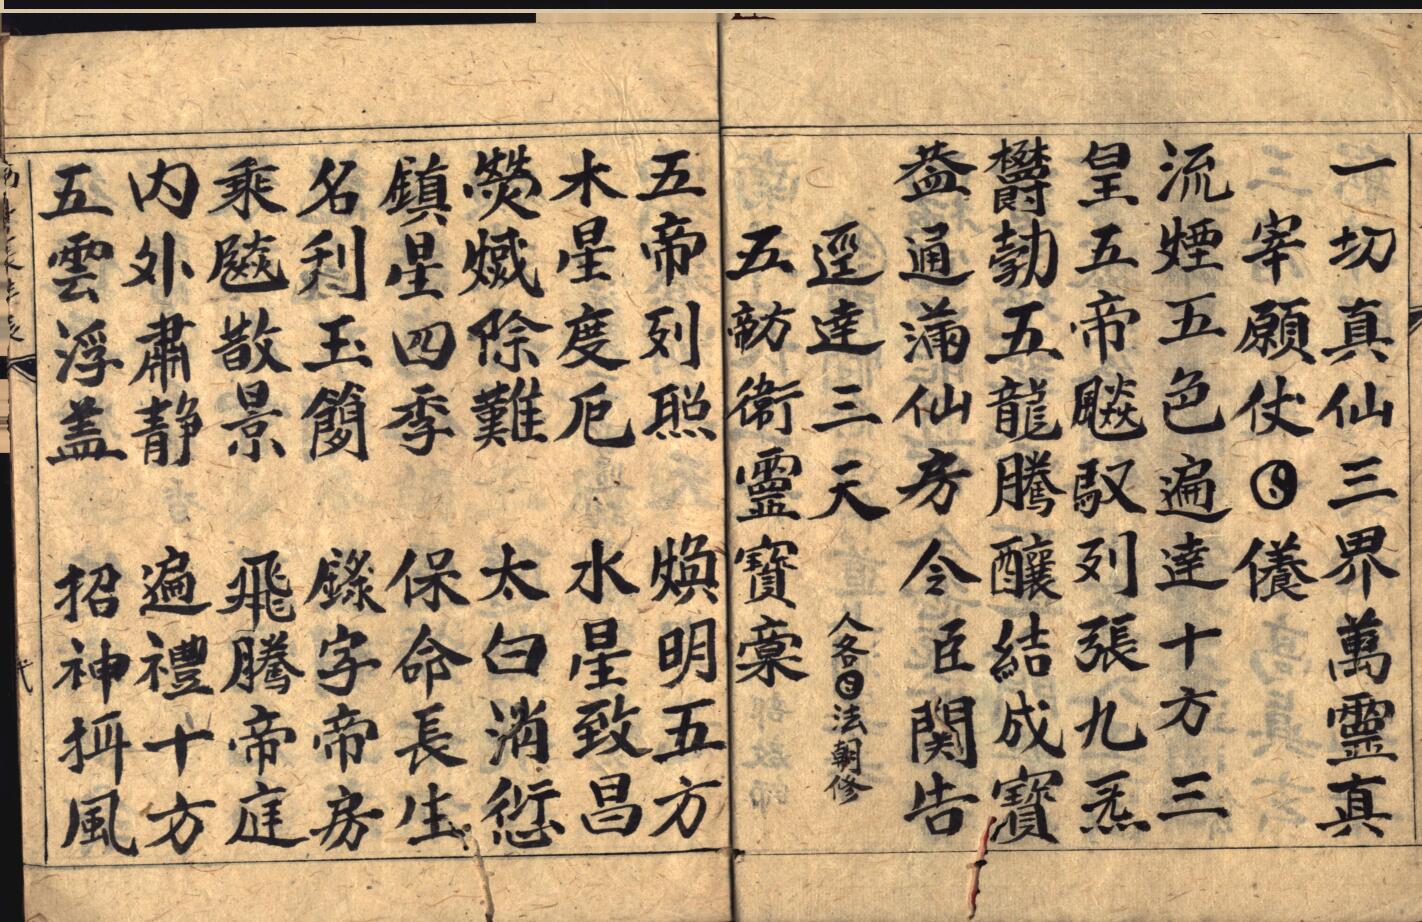 一切真仙三界萬靈真
宰願仗☯儀
流煙五色遍達十方三
皇五帝飈馭列張九炁
欝勃五龍騰釀結成寶
蓋通滿仙房令臣関告
逕達三天
人各回法朝修
五韍衛靈寶稾
五帝列照 煥明五方
木星度厄 水星致昌
熒熾除難 太白消愆
鎮星四季 保命長生
名利玉簡 錄字帝房
乘飈散景 飛騰帝庭
内外肅静 遍禮十方
五雲浮蓋 招神抲風